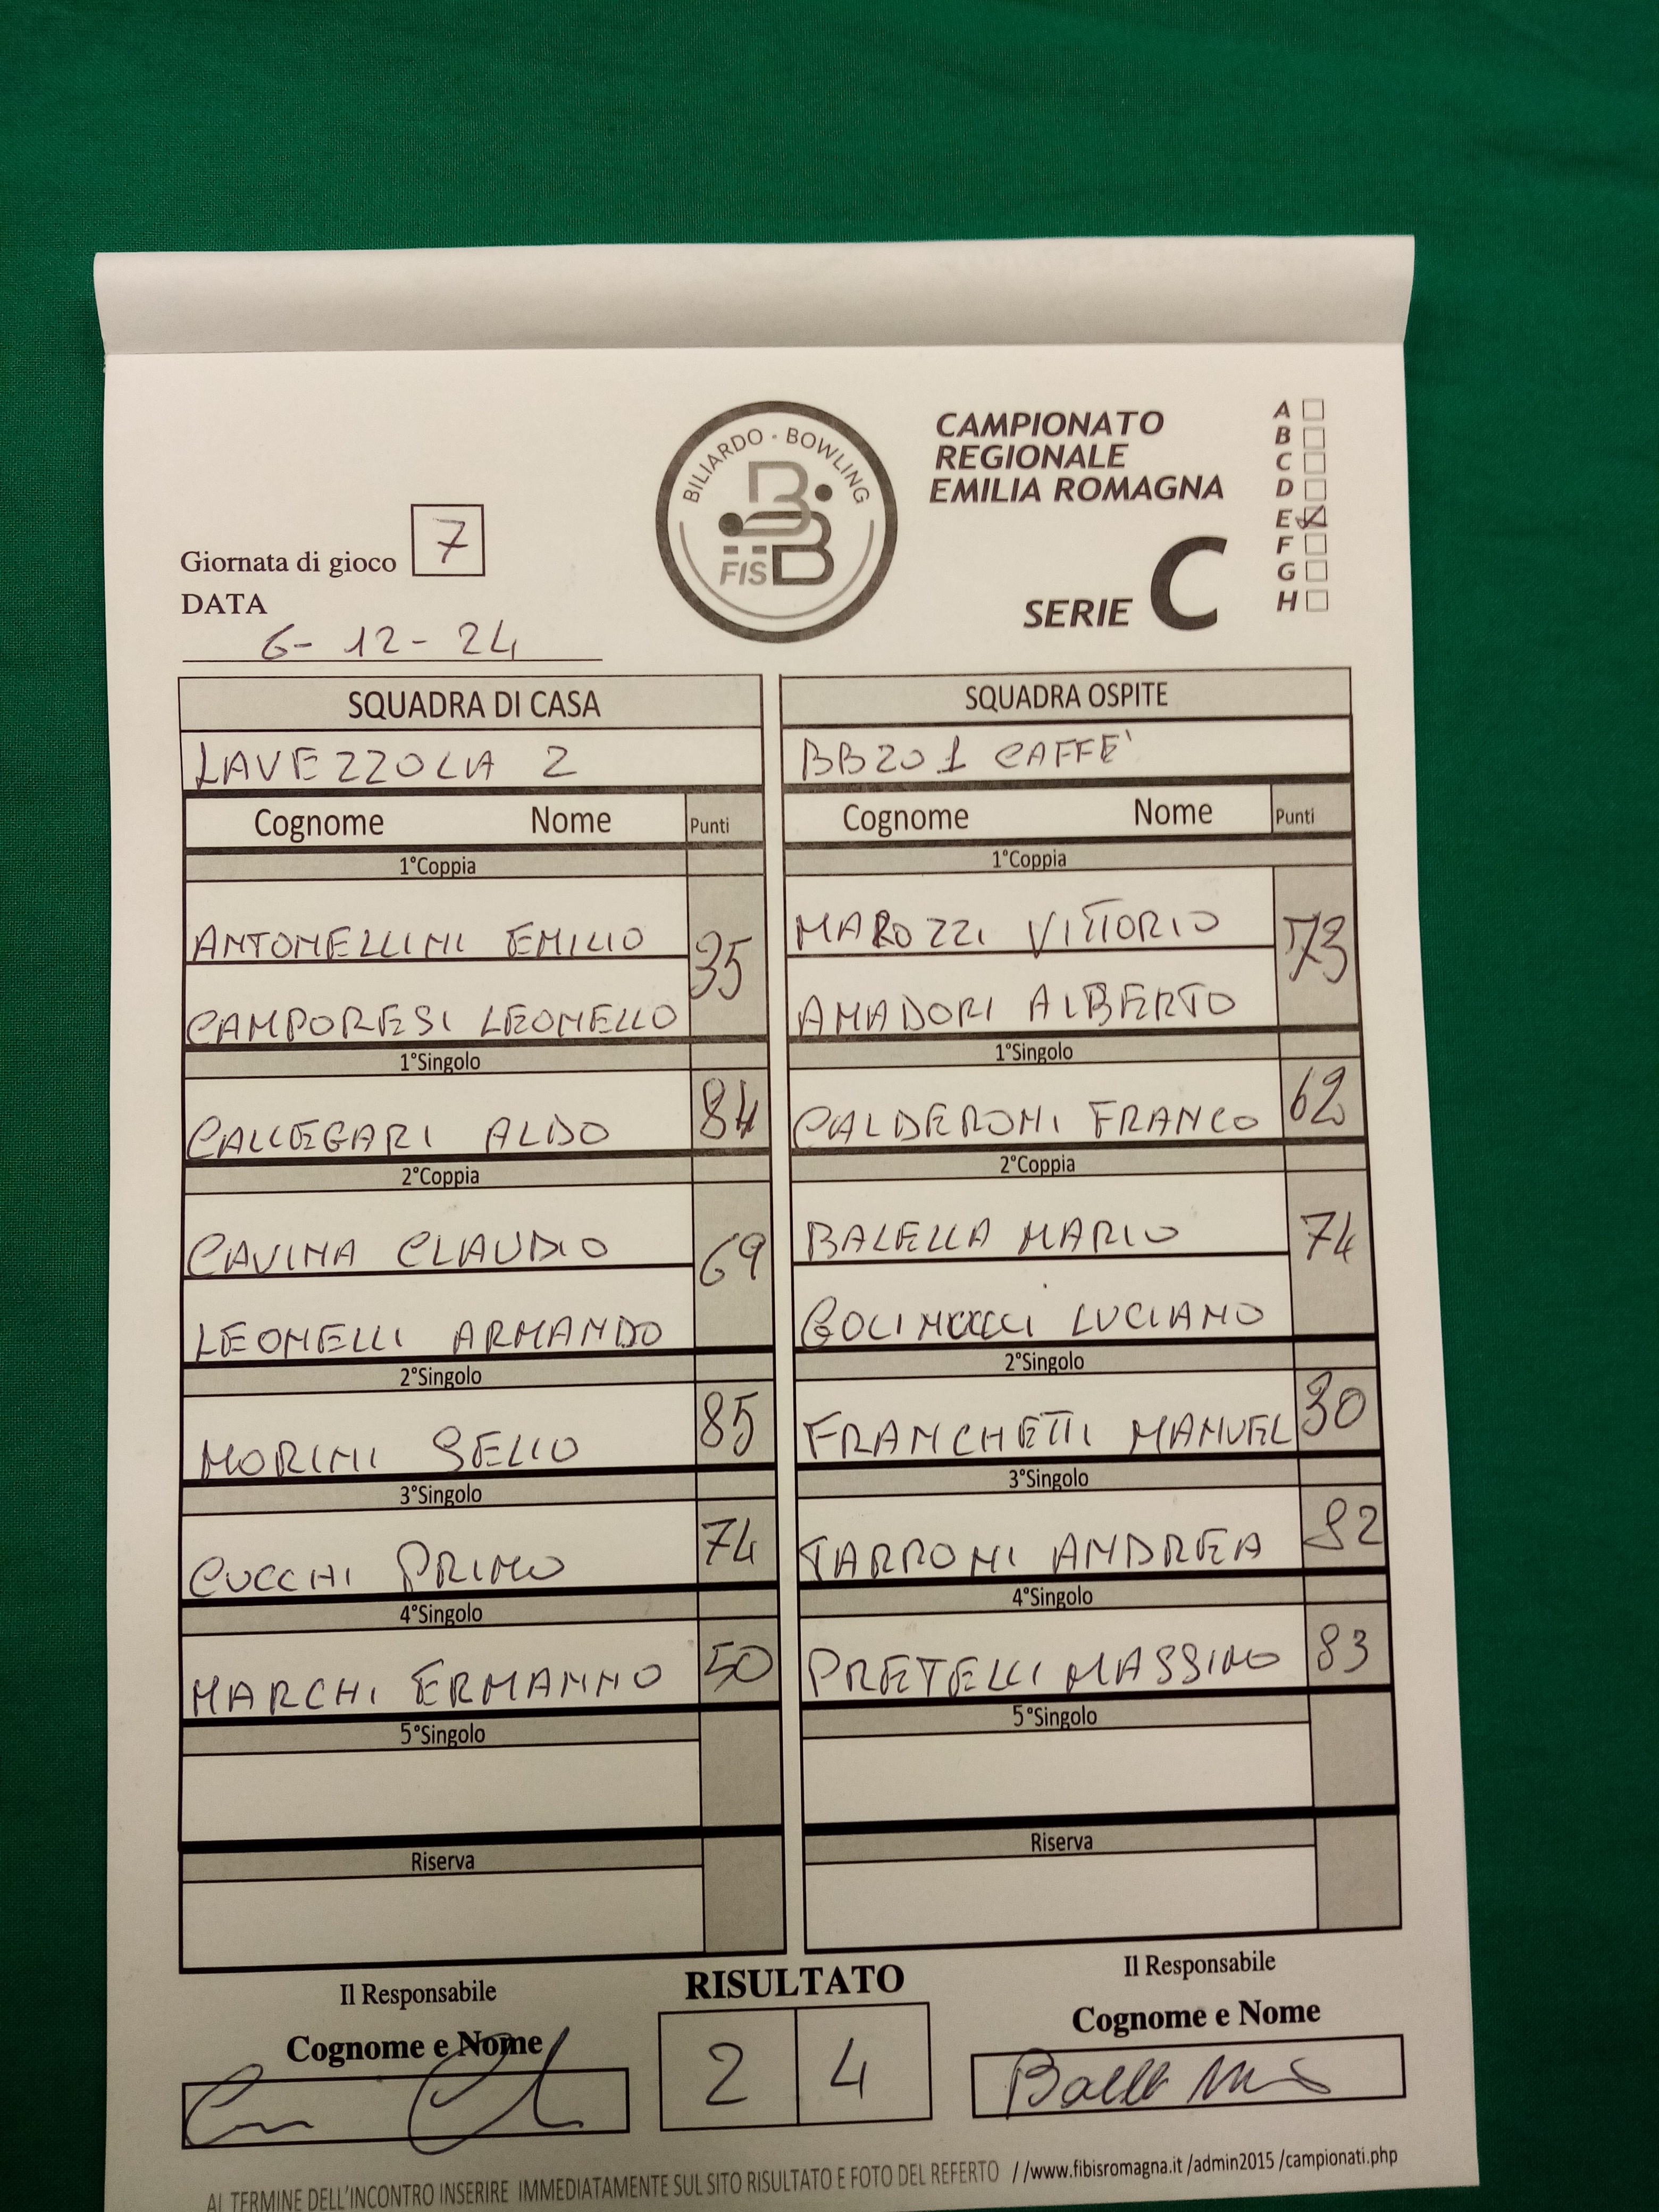 BILIARDO - BOWLING
FISBB
CAMPIONATO
REGIONALE
EMILIA ROMAGNA
SERIE C
A
B
C
D
E
F
G
H
Giornata di gioco 7
DATA
6-12-24
SQUADRA DI CASA
LAVEZZOLA 2
Cognome Nome Punti
1°Coppia
ANTONELLINI EMILIO
35
CAMPORESI LEONELLO
1°Singolo
CALLEGARI ALDO 84
2°Coppia
CAVINA CLAUDIO
69
LEONELLI ARMANDO
2°Singolo
MORINI SELIO 85
3°Singolo
CUCCHI PRIMO 74
4°Singolo
MARCHI ERMANNO 50
5°Singolo
Riserva
SQUADRA OSPITE
BB201 CAFFE'
Cognome Nome Punti
1°Coppia
MAROZZI VITTORIO
73
AMADORI ALBERTO
1°Singolo
CALDERONI FRANCO 62
2°Coppia
BALELLA MARIO
74
LUCIANO
2°Singolo
FRANCHETTI MANUEL 30
3°Singolo
TARRONI ANDREA 92
4°Singolo
PRETELLI MASSIMO 83
5°Singolo
Riserva
Il Responsabile
Cognome e Nome
RISULTATO
2 4
Il Responsabile
Cognome e Nome
AL TERMINE DELL'INCONTRO INSERIRE IMMEDIATAMENTE SUL SITO RISULTATO E FOTO DEL REFERTO //www.fibisromagna.it /admin2015 /campionati.php